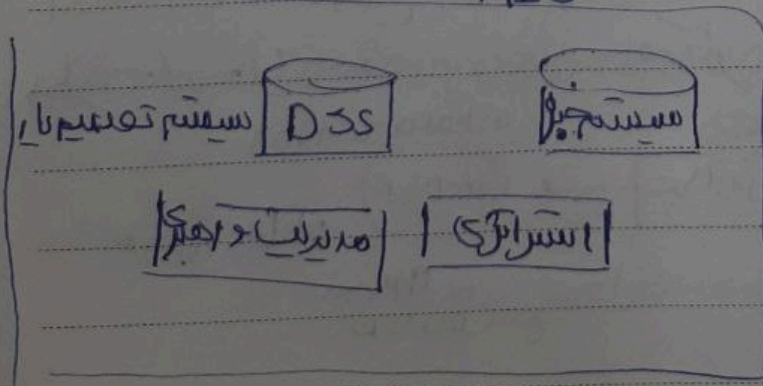 سیستم خبره DSS سیستم تصمیم یار
استراتژی مدیریت و راهبری